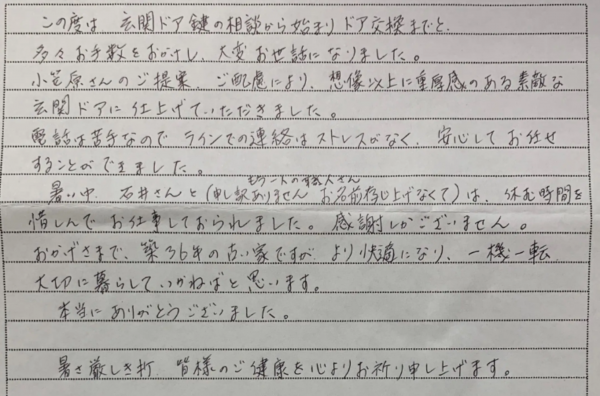 この度は 玄関ドア鍵の相談から始まり ドア交換までと、
多々お手数をおかけし、大変お世話になりました。
小笠原さんのご提案、ご配慮により、想像以上に重厚感のある素敵な
玄関ドアに仕上げていただきました。
電話は苦手なので ラインでの連絡はストレスがなく、安心してお任せ
することができました。
もう一人の職人さん
暑い中、石井さんと(申し訳ありません お名前存じ上げなくて)は、休む時間を
惜しんでお仕事しておられました。感謝しかございません。
おかげさまで、築36年の古い家ですが より快適になり、一機一転
大切に暮らしていかねばと思います。
本当にありがとうございました。
暑さ厳しき折 皆様のご健康を心よりお祈り申し上げます。